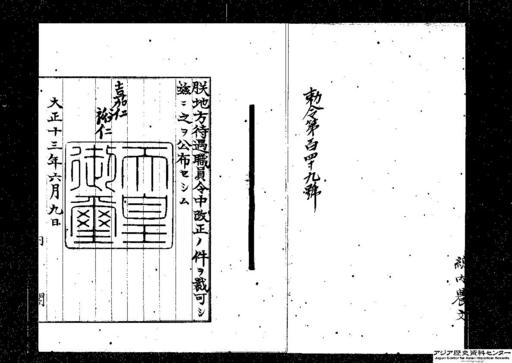 勅令第百四十九號
朕地方待遇職員令中改正ノ件ヲ裁可シ
茲ニ之ヲ公布セシム
嘉仁
裕仁
天皇御璽
大正十三年六月九日
アジア歴史資料センター
Japan Center for Asian Historical Records